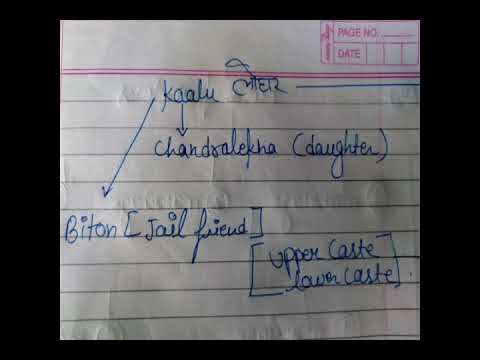 PAGE NO.
DATE
Kaalu लोहार
Chandralekha (daughter)
Biton [Jail friend]
[upper caste
lower caste].